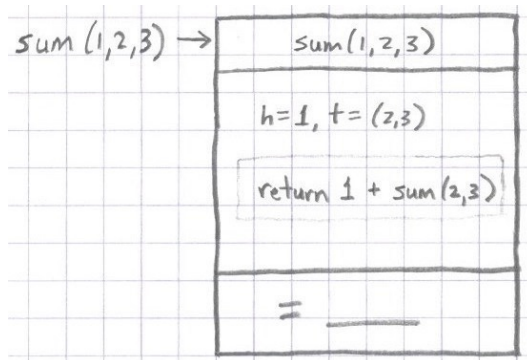 sum (1,2,3) → sum(1,2,3)
h=1, t=(2,3)
return 1 + sum(2,3)
= ____